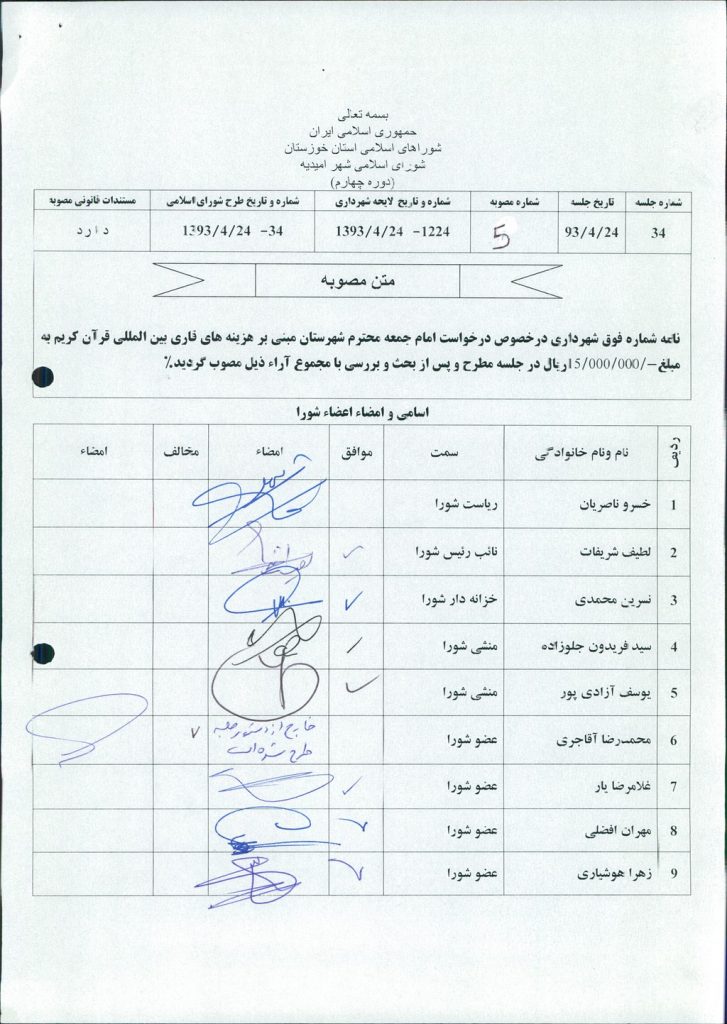 بسمه تعالی
جمهوری اسلامی ایران
شوراهای اسلامی استان خوزستان
شورای اسلامی شهر امیدیه
(دوره چهارم)
شماره جلسه تاریخ جلسه شماره مصوبه شماره و تاریخ لایحه شهرداری شماره و تاریخ طرح شورای اسلامی مستندات قانونی مصوبه
34 93/4/24 5 1224- 1393/4/24 34- 1393/4/24 دارد
متن مصوبه
نامه شماره فوق شهرداری درخصوص درخواست امام جمعه محترم شهرستان مبنی بر هزینه های قاری بین المللی قرآن کریم به
مبلغ-/15/000/000ریال در جلسه مطرح و پس از بحث و بررسی با مجموع آراء ذیل مصوب گردید.٪
اسامی و امضاء اعضاء شورا
ردیف نام ونام خانوادگی سمت موافق امضاء مخالف امضاء
1 خسرو ناصریان ریاست شورا
2 لطیف شریفات نائب رئیس شورا
3 نسرین محمدی خزانه دار شورا
4 سید فریدون جلوزاده منشی شورا
5 یوسف آزادی پور منشی شورا
6 محمدرضا آقاجری عضو شورا خارج از دستور جلسه
طرح شده است
7 غلامرضا یار عضو شورا
8 مهران افضلی عضو شورا
9 زهرا هوشیاری عضو شورا